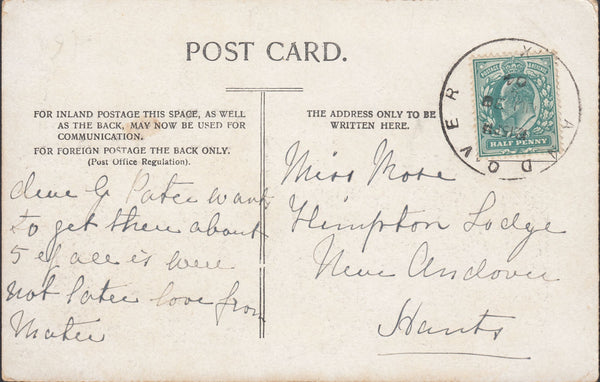 POST CARD.
FOR INLAND POSTAGE THIS SPACE, AS WELL
AS THE BACK, MAY NOW BE USED FOR
COMMUNICATION.
FOR FOREIGN POSTAGE THE BACK ONLY.
(Post Office Regulation).
THE ADDRESS ONLY TO BE
WRITTEN HERE.
POSTAGE REVENUE
HALF PENNY
ANDOVER
dear G Pater wants
to get there about
5 if all is well
not later love from
Mater
Miss Rose
Flimpton Lodge
Near Andover
Hants